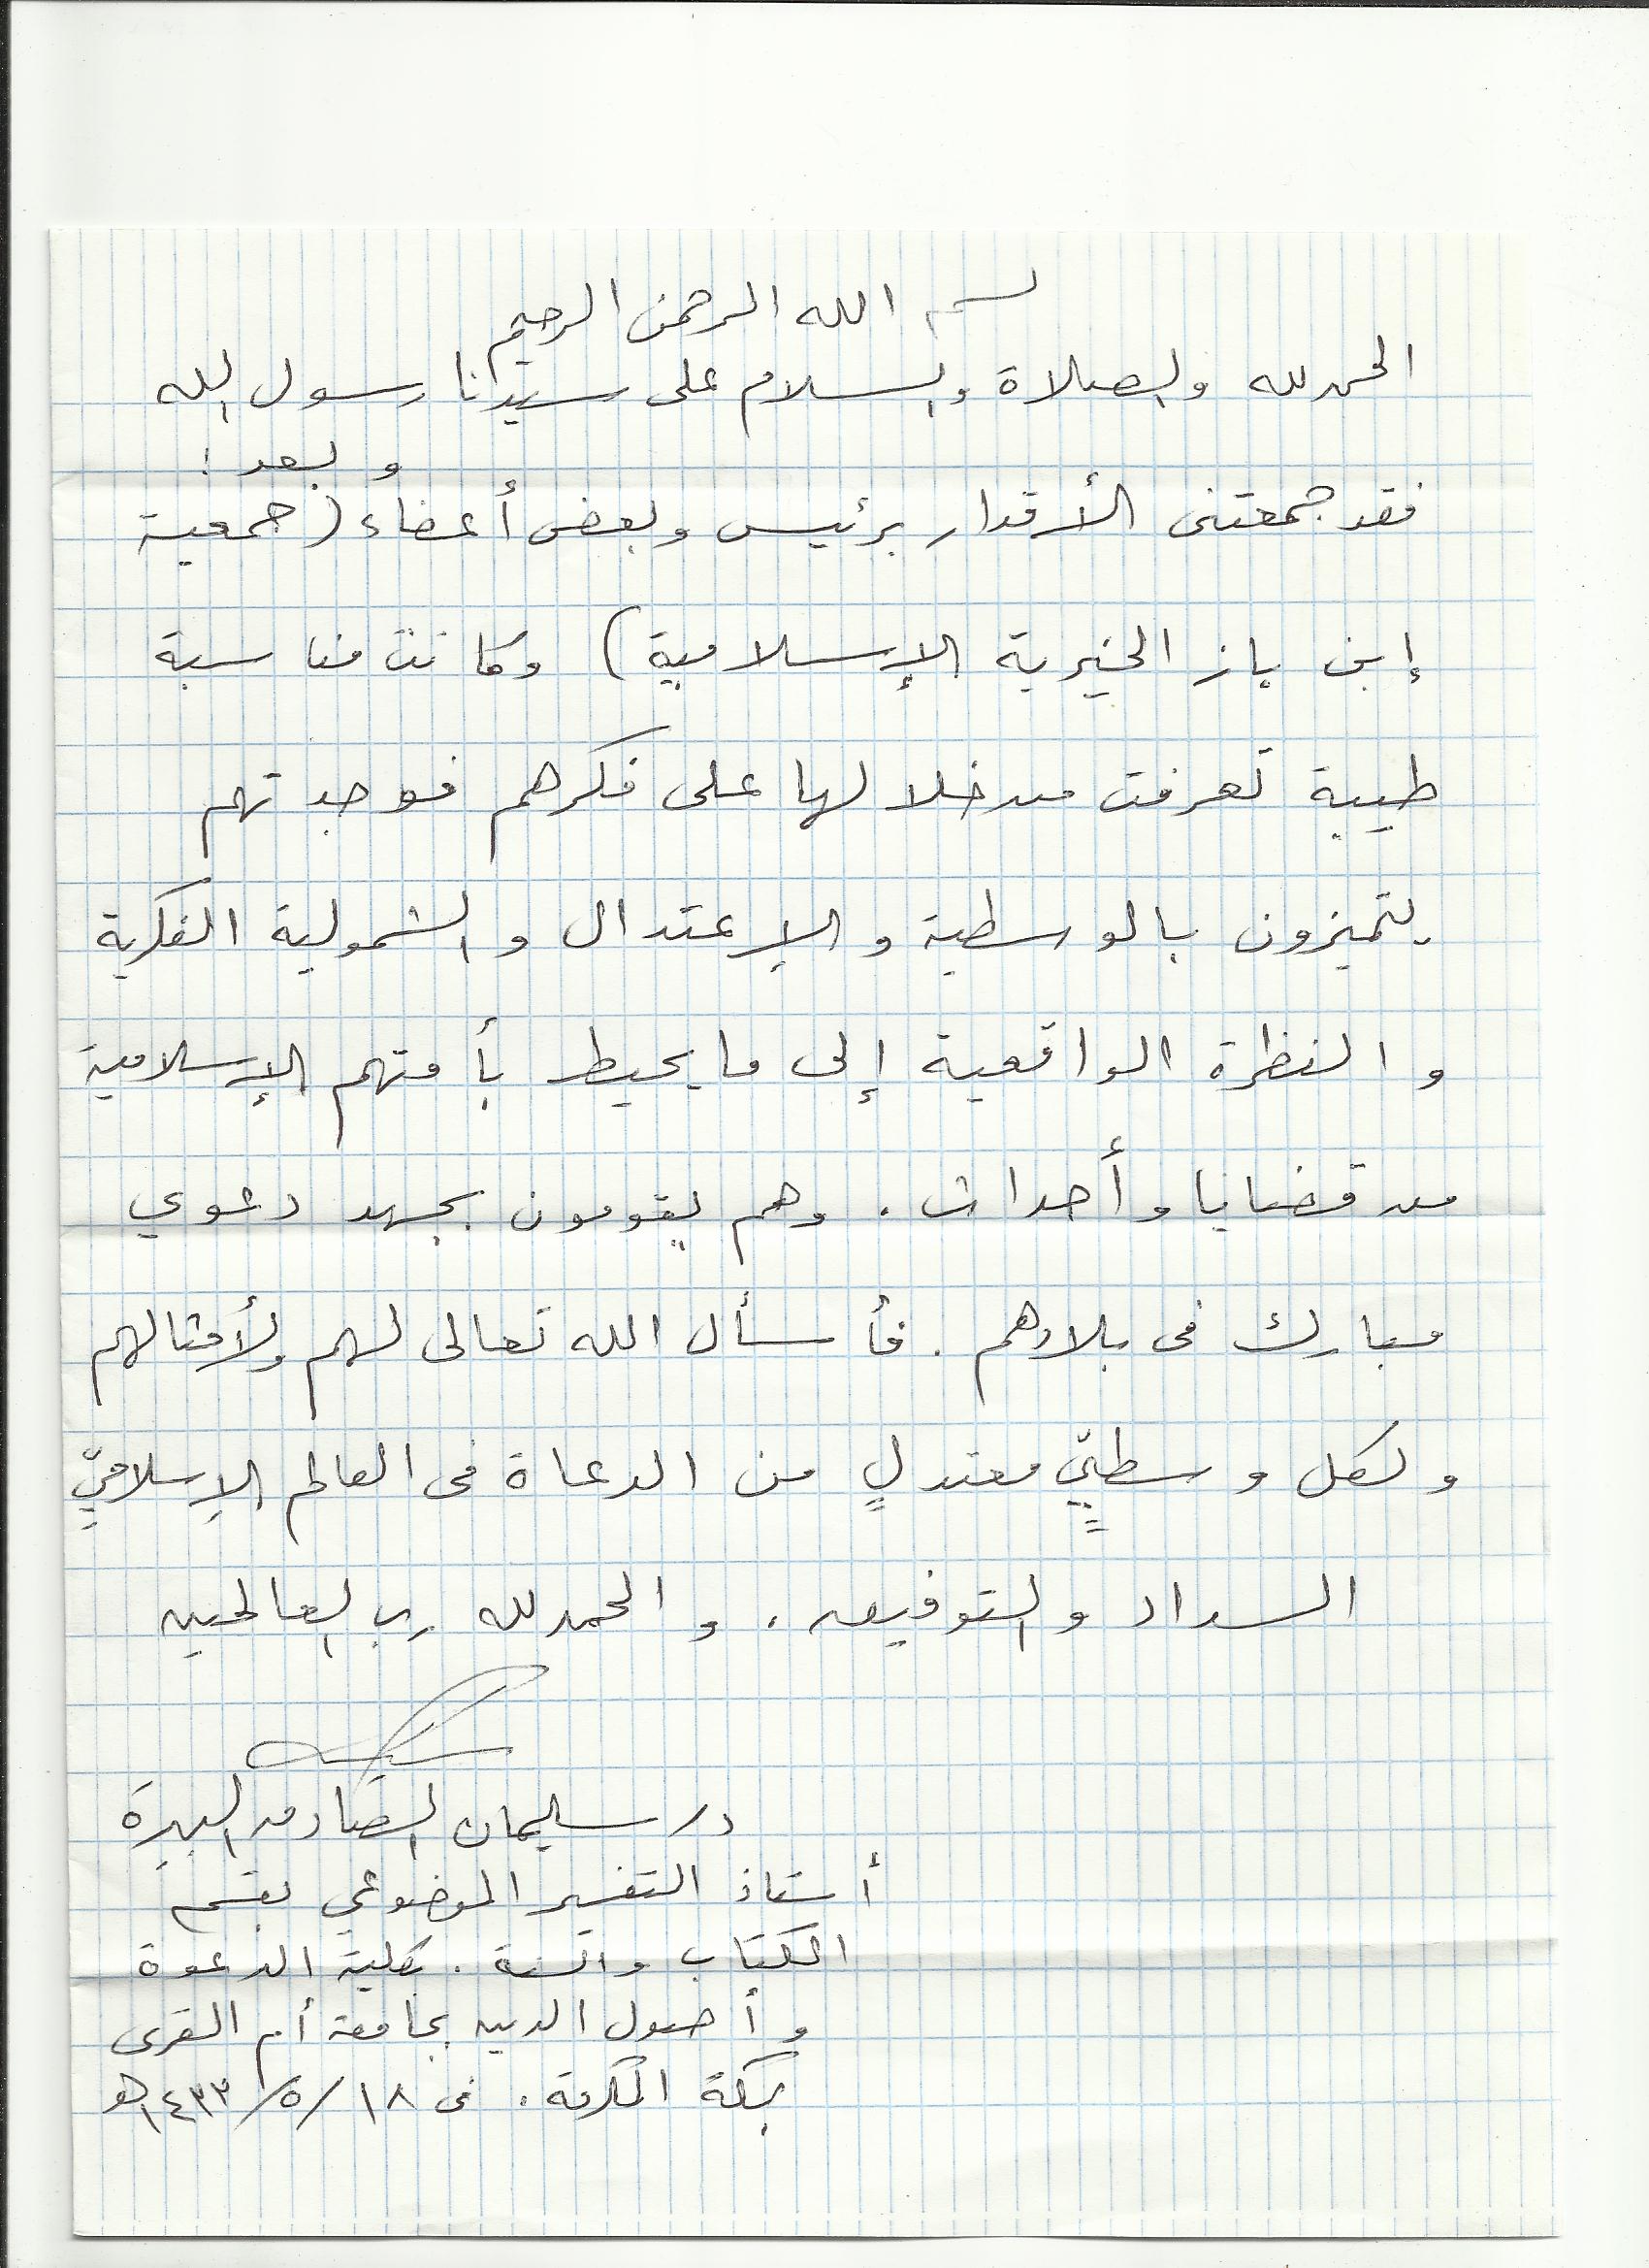 بسم الله الرحمن الرحيم
الحمد لله والصلاة والسلام على سيدنا رسول الله
وبعد:
فقد جمعتنى الأقدار برئيس وبعض أعضاء (جمعية
إبن باز الخيرية الإسلامية) وكانت مناسبة
طيبة تعرفت من خلالها على فكرهم فوجدتهم
يتميزون بالوسطية والإعتدال والشمولية الفكرية
والنظرة الواقعية إلى ما يحيط بأمتهم الإسلامية
من قضايا وأحداث. وهم يقومون بجهد دعوي
مبارك فى بلادهم. فأسأل الله تعالى لهم ولأمثالهم
ولكل وسطيٍّ معتدلٍ من الدعاة فى العالم الإسلاميِّ
السداد والتوفيق. والحمد لله رب العالمين
د/ سليمان الصادق البيرة
أستاذ التفسير الموضوعي بقسم
الكتاب والسنة. بكلية الدعوة
وأصول الدين بجامعة أم القرى
بمكة المكرمة. فى ١٨/٥/١٤٣٣هـ